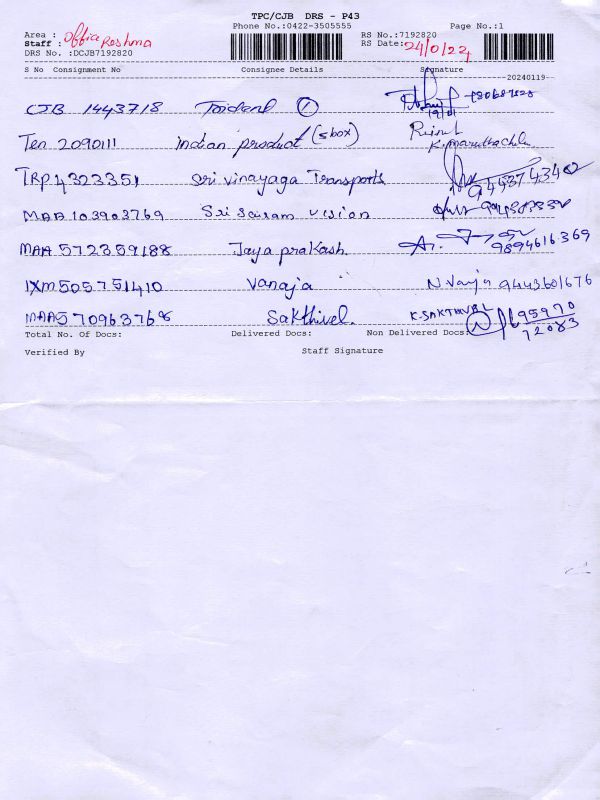 TPC/CJB DRS - P43
Phone No.:0422-3505555 Page No.:1
Area : Office RS No.:7192820
Staff : Reshma RS Date:
DRS No. :DCJB7192820
S No Consignment No Consignee Details Signature
20240119
CJB 1443718 Trident 1 19/01
Ten 2090111 indian product (5box)
K. Maruthachala
TRP 4323351 Sri vinayaga Transports 944374340
MAA 103903769 Sri Sairam vision
MAA 572359188 Jaya prakash. 9894616369
IXM 505751410 Vanaja N. Vanja 9443601676
MAA 570963768 Sakthivel. K.SAKTHVEL N 95970
72083
Total No. Of Docs: Delivered Docs: Non Delivered Docs:
Verified By Staff Signature